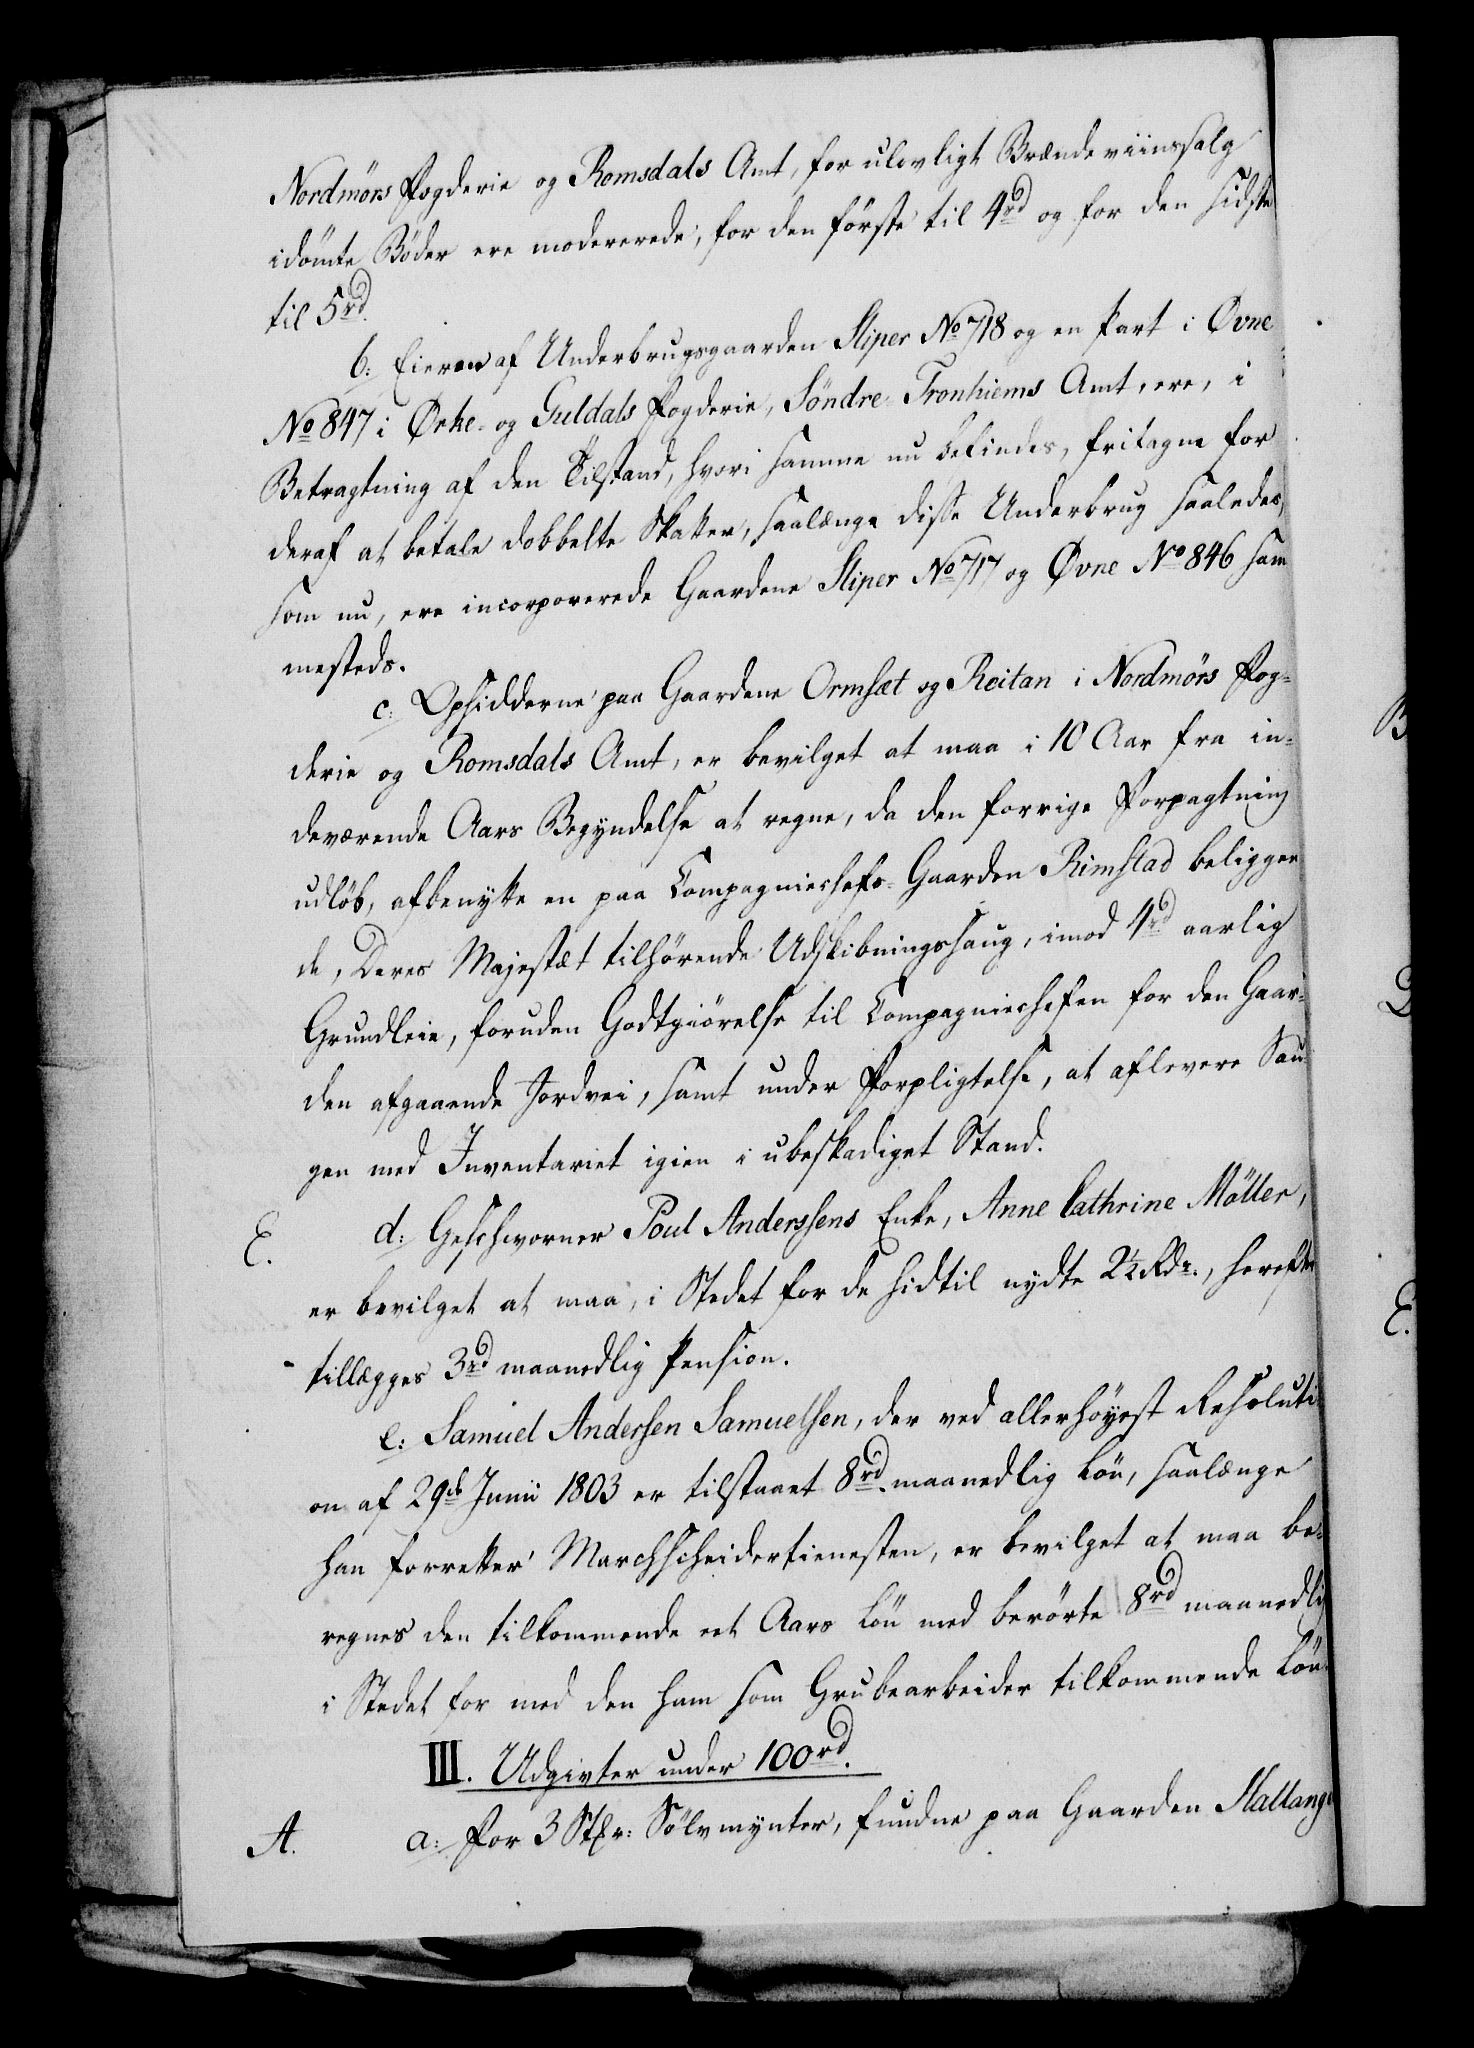 Nordmörs Fogderie og Romsdals Amt, for ulovligt Brændeviinssalg
idömte Böder ere modererede, for den förste til 4rd og for den sidste
til 5rd.
b: Eieren af Underbrugsgaarden Sliper No 718 og en Part i Øvne
No 847 i Ørke- og Guldals Fogderie, Söndre Tronhiems Amt, ere, i
Betragtning af den Tilstand, hvori samme nu befindes, fritagne for
deraf at betale dobbelte Skatter, saalænge disse Underbrug saaledes,
som nu, ere incorporerede Gaardene Sliper No 717 og Øvne No 846 sam
mesteds.
c: Opsidderne paa Gaardene Ormsæt og Reitan i Nordmörs Fog-
derie og Romsdals Amt, er bevilget at maa i 10 Aar fra in-
deværende Aars Begyndelse at regne, da den forrige Forpagtning
udlöb, afbenytte en paa Compagniechefs-Gaarden Rimstad beliggen
de, Deres Majestæt tilhörende Udskibningssaug, imod 4rd aarlig
Grundleie, foruden Godtgiörelse til Compagniechefen for den Gaar-
den afgaaende Jordvei, samt under Forpligtelse, at aflevere Sau-
gen med Inventariet igien i ubeskadiget Stand.
E. d: Geschworner Poul Anderssens Enke, Anne Cathrine Möller,
er bevilget at maa, i Stedet for de hidtil nydte 2½ Rdr., herefter
tillægges 3rd maanedlig Pension.
e: Samuel Andersen Samuelsen, der ved allerhöyest Resoluti-
on af 29de Junii 1803 er tilstaaet 8rd. maanedlig Lön, saalænge
han forretter Marchscheidertienesten, er bevilget at maa be-
regnes den tilkommende eet Aars Lön med berörte 8rd maanedlig
i Stedet for med den ham som Grubearbeider tilkommende Lön.
III. Udgivter under 100rd.
A. a: For 3 Stkr: Sölvmynter, fundne paa Gaarden Slallang
B
D
E.